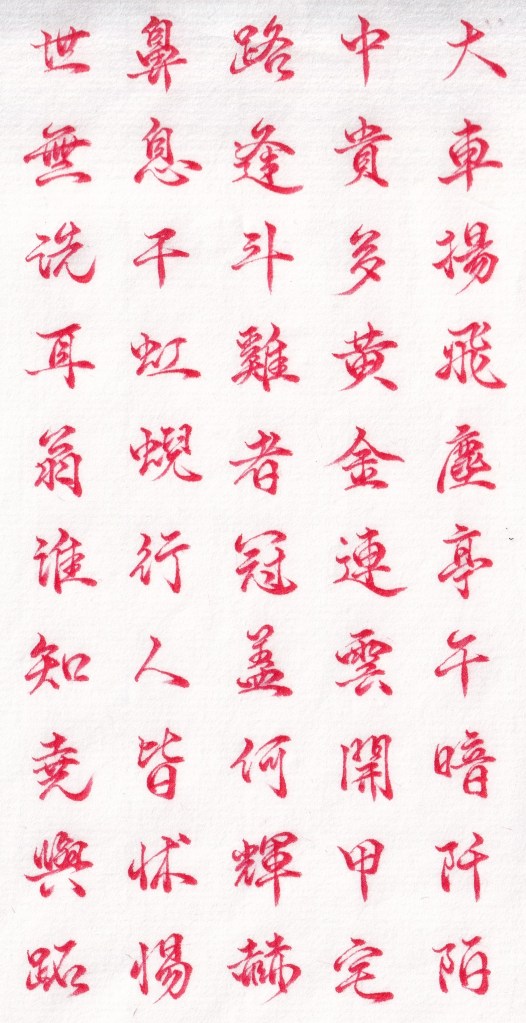 大車揚飛塵亭午暗阡陌
中貴多黃金連雲開甲宅
路逢斗雞者冠蓋何輝赫
鼻息干虹蜺行人皆怵惕
世無洗耳翁誰知堯與跖